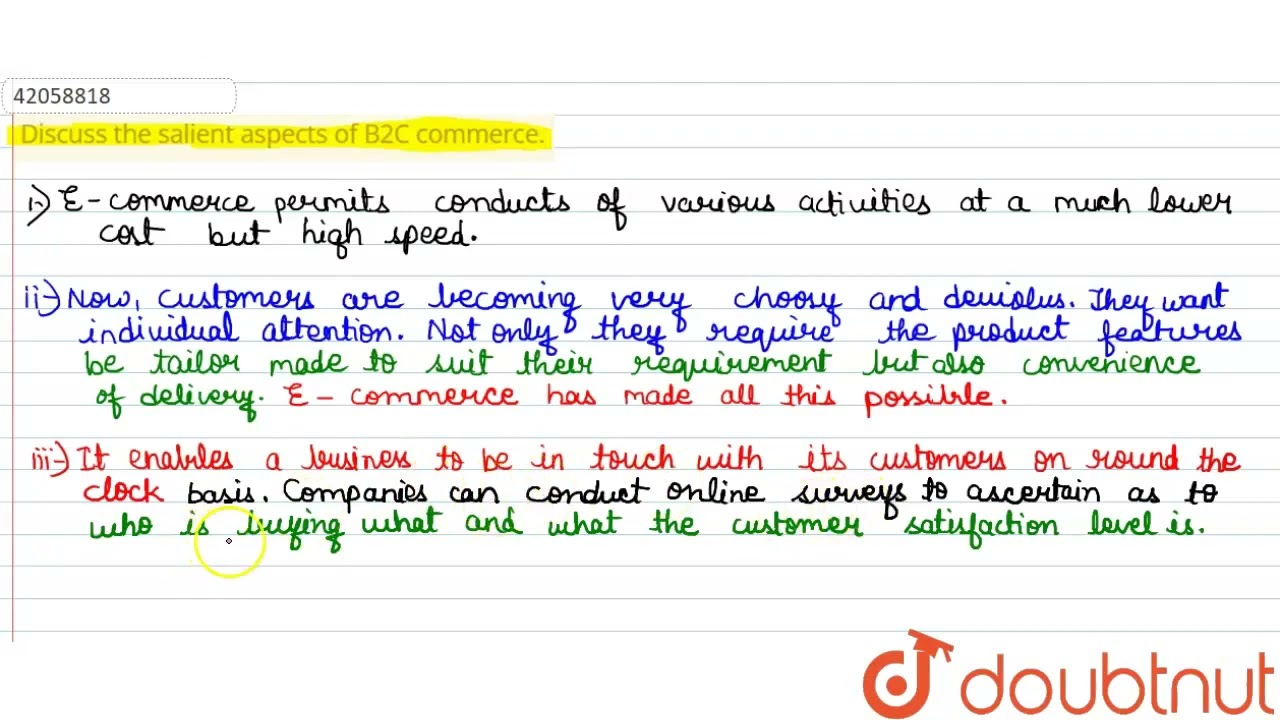 42058818
Discuss the salient aspects of B2C commerce.
i-) E-commerce permits conducts of various activities at a much lower
cost but high speed.
ii-) Now, customers are becoming very choosy and deviolus. They want
individual attention. Not only they require the product features
be tailor made to suit their requirement but also convenience
of delivery. E-commerce has made all this possible.
iii-) It enables a business to be in touch with its customers on round the
clock basis. Companies can conduct online surveys to ascertain as to
who is buying what and what the customer satisfaction level is.
doubtnut